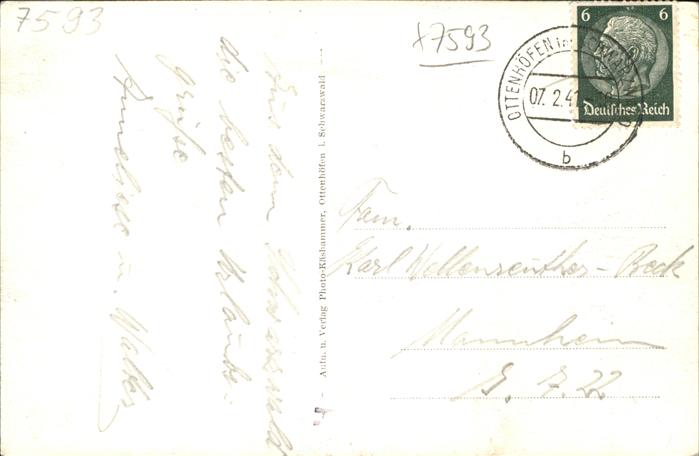 7593
x7593
6 6
Deutsches Reich
OTTENHÖFEN
07. 2. 41
b
Aus dem Schwarzwald
die besten Urlaubs-
grüße
Anneliese u. Walter
Aufn. u. Verlag Photo-Käshammer, Ottenhöfen i. Schwarzwald
Fam.
Karl Wellenreuther-Beck
Mannheim
G. 7. 22